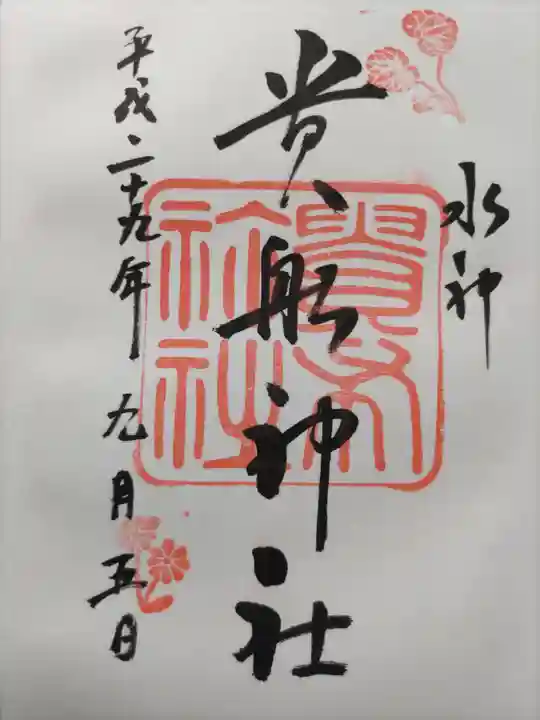 水神
貴船神社
平成二十九年 九月五日